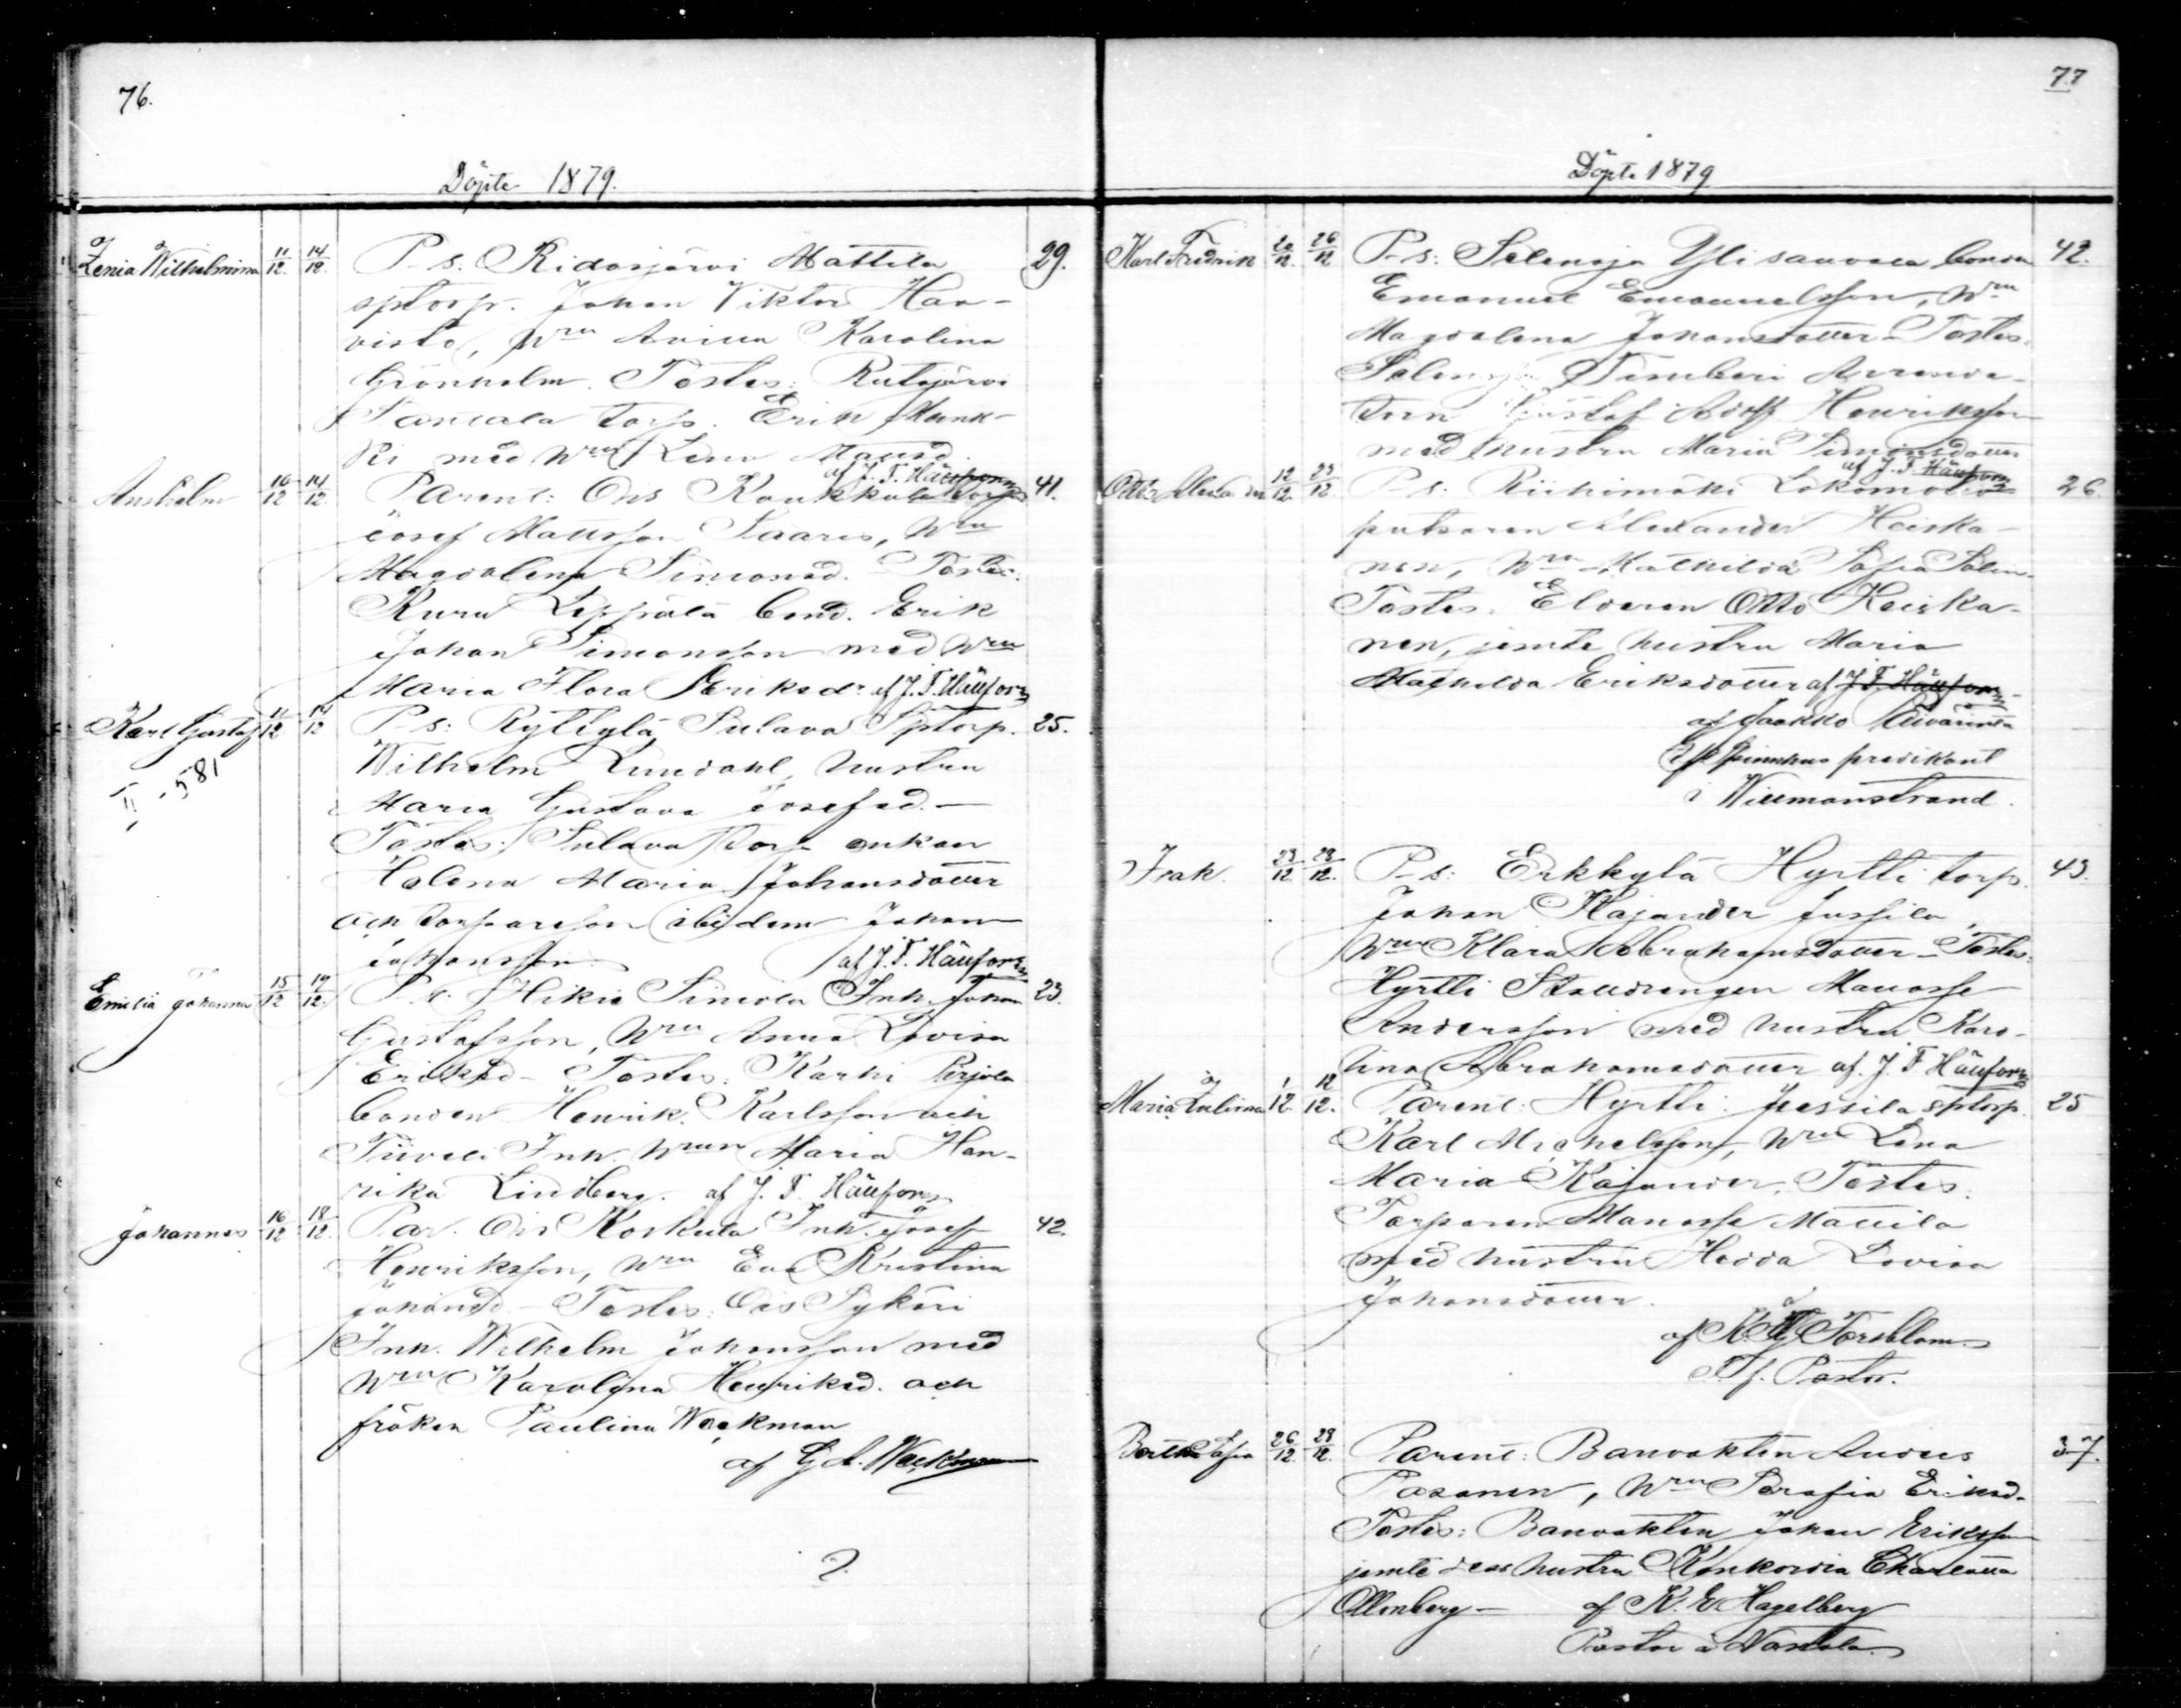 76.
Döpte 1879.
Zenia Wilhelmina 11/12. 14/12. P-s. Ridasjärvi Mattila 29.
sptorp. Johan Viktor Haa-
visto, Hru Karolina
Grönholm. Testes: Rutajärvi
torp. Erik Munk-
ki med Hru Lena Mattsd.
af J. T. Hällfors
Anshelm 10/12 14/12. Parent: Ois Koukkula torp. 41.
Josef Mattsson Saares, Hru
Magdalena Simonsd. - Testes:
Kuru Leppälä bond. Erik
Johan Simonsson med Hru
Maria Flora Eriksdr af J. T. Hällfors
Karl Gustaf 11/12 14/12 P-s: Rytkylä Sulava Sptorp. 25.
II - 581
Wilhelm Lindahl, hustru
Maria Gustava Josefsd. -
Testes: Sulava Torp enkan
Helena Maria Johansdotter
och torpareson ibidem Johan
Johansson. af J. T. Hällfors
Emilia Johanna 15/12 17/12. P-s. Hikiä Simola Inh. Johan 23.
Gustafsson, Hru Anna Lovisa
Eriksd - Testes: Karhi Perjola
bonden Henrik Karlsson och
Inh. Hrun Maria Hen-
rika Lindberg. af J. T. Hällfors
Johannes 16/12 18/12. Par. Ois Koskula Inh. Josef 42.
Henriksson, Hru Eva Kristina
Johansd. - Testes: Ois Sykäri
Inh. Wilhelm Johansson med
Hru Karolina Henriksd. och
fröken Paulina Wackman
af G. A. Wackman
2.
77
Döpte 1879
Karl Fredrik 20/12. 26/12 P-s: Selensoja Ylisauvala bonden 42.
Emanuel Emanuelsson, Hru
Magdalena Johansdotter - Testes:
Arrenda-
torn Gustaf Adolf Henriksson
med hustru Maria Simonsdotter
af J. T. Hällfors
Otto Alexander 12/12. 23/12. P-s: Riihimäki Lokomotiv 26.
putsaren Alexander Heiska-
nen, Hru Mathilda Sofia Salen.
Testes. Eldaren Otto Heiska-
nen, jemte hustru Maria
Mathilda Eriksdotter af J. T. Hällfors
af Jaakko
Spinnhus predikant
i Willmanstrand.
Isak. 23/12 28/12. P-s: Erkkylä Hyrtti torp. 43.
Johan Kajander Jussila,
Hru Klara Abrahamsdotter - Testes:
Hyrtti Stalldrengen Manasse
Andersson med hustru Karo-
lina Abrahamsdotter af. J. T. Hällfors
Maria Julina 1/12. 12/12. Parent: Hyrtti Jussila sptorp. 25
Karl Michelsson, Hru Lena
Maria Kajander. Testes:
Torparen Manasse Mattila
med hustru Hedda Lovisa
Johansdotter.
af K. G. Forsblom
Tf. Pastor.
Bertha Sofia 26/12. 28/12. Parent: Banvakten Anders 37.
Pasanen, Hru Serafia Eriksd.
Testes: Banvakten Johan Eriksson
jemte dess hustru Konkordia Charlotta
Ollenberg - af K. E. Hagelberg
Pastor i Nastola.